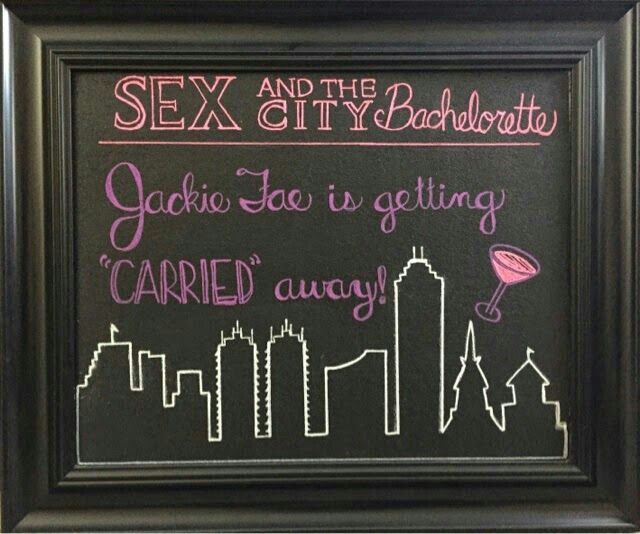 SEX AND THE CITY Bachelorette
Jackie Fae is getting
"CARRIED" away!